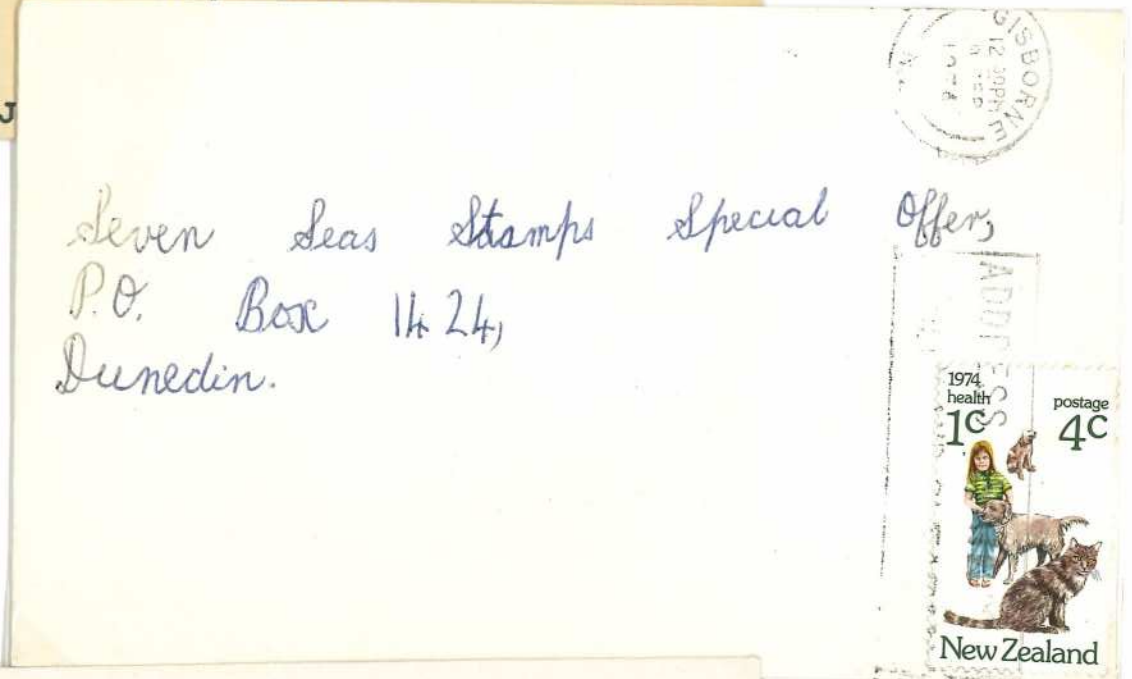 J
GISBORNE
12 30PM
SEP
1974
Seven Seas Stamps Special Offer,
P.O. Box 1424,
Dunedin.
ADDRESS
1974
health
1c
postage
4c
New Zealand